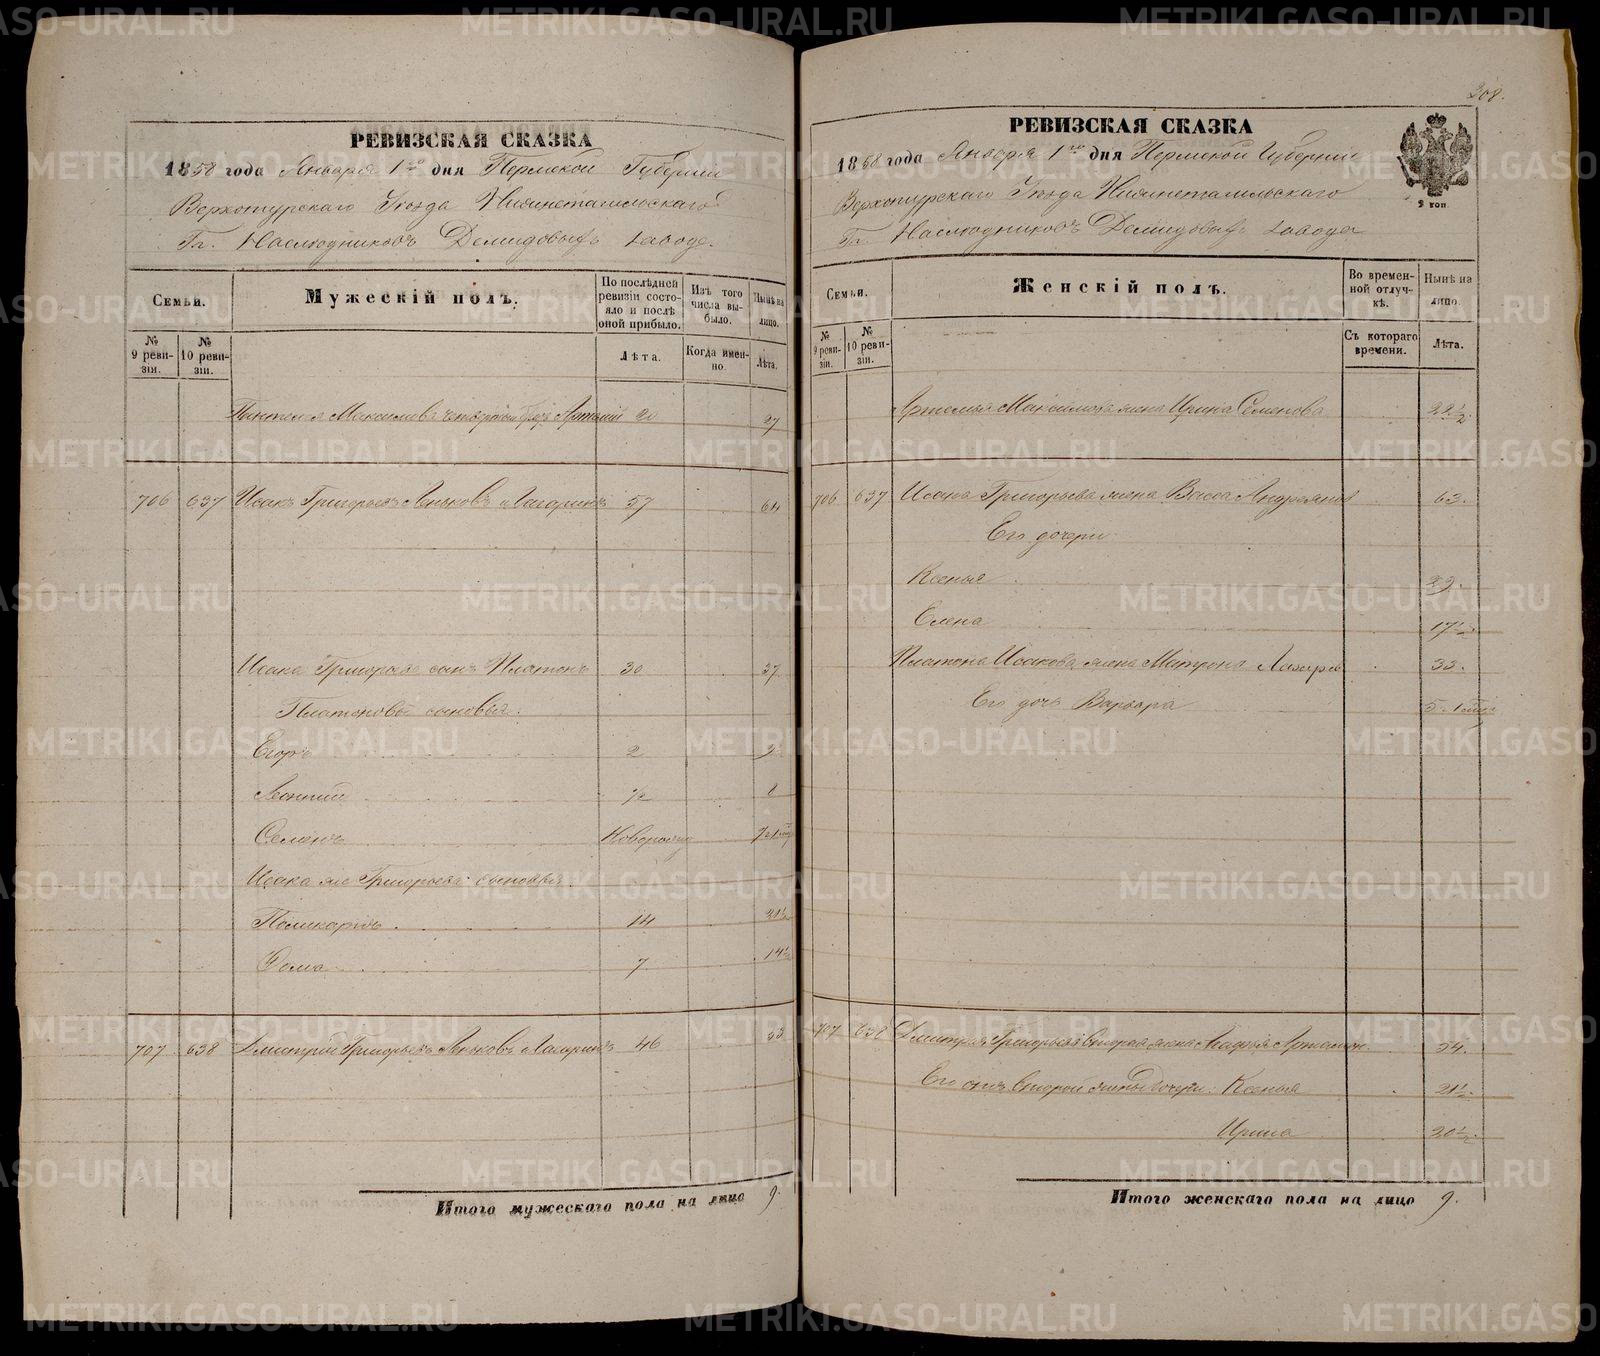 308.
РЕВИЗСКАЯ СКАЗКА
1858 года Января 1го дня Пермской Губернии
Верхотурскаго Уезда Нижнетагильскаго
Гг. Наследниковъ Демидовыхъ завода.
Семьи.
Мужескій полъ.
По послѣдней ревизіи состояло и послѣ оной прибыло.
Изъ того числа выбыло.
Нынѣ на лицо.
№ 9 ревизіи.
№ 10 ревизіи.
Лѣта.
Когда именно.
Лѣта.
Максимова четвертый братъ Артемій 20 27
706 637 Исакъ Григорьевъ 57 64
Исака Григорьева сынъ Платонъ 30 37
Платоновы сыновья:
Егоръ 2 9
Леонтий 1/2 8
Семенъ Новорожд
Исака же Григорьева сыновья:
Поликарпъ 14 21½
Фома 7 14½
707 638 Дмитрій Григорьевъ 46 53
Итого мужескаго пола на лицо 9.
РЕВИЗСКАЯ СКАЗКА
1858 года Января 1го дня Пермской Губерніи
Верхотурскаго Уезда Нижнетагильскаго
Гг. Наследниковъ Демидовыхъ завода
9 коп
Семьи.
Женскій полъ.
Во временной отлучкѣ.
Нынѣ на лицо.
№ 9 ревизіи.
№ 10 ревизіи.
Съ котораго времени.
Лѣта.
Артемья Максимова жена Ирина Семенова 22½
706 637 Исака Григорьева жена Васса Андреянов 63.
Его дочери
Ксенья 29.
Елена 17½
Платона Исакова жена Матрона Лазарев 33.
Его дочь Варвара
707 638 Дмитрия Григорьева вторая жена 54.
Его отъ второй жены дочери: Ксенья 21½
Ирина 20½
Итого женскаго пола на лицо 9.
METRIKI.GASO-URAL.RU